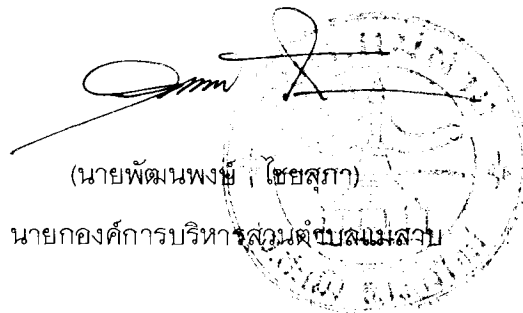 (นายพัฒนพงษ์ ไชยสุภา)
นายกองค์การบริหารส่วนตำบลแม่สาบ